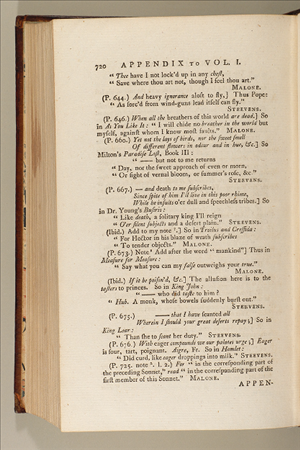 720 APPENDIX TO VOL. I.
" Thee have I not lock'd up in any chest,
" Save where thou art not, though I feel thou art."
MALONE.
(P. 644.) And heavy ignorance aloft to fly,] Thus Pope:
" As forc'd from wind-guns lead itself can fly."
STEEVENS.
(P. 646.) When all the breathers of this world are dead.] So
in As You Like It: " I will chide no breather in the world but
myself, against whom I know most faults." MALONE.
(P. 660.) Yet not the lays of birds, nor the sweet smell
Of different flowers in odour and in hue, &c.] So
Milton's Paradise Lost, Book III:
" —— but not to me returns
" Day, nor the sweet approach of even or morn,
" Or sight of vernal bloom, or summer's rose, &c."
STEEVENS.
(P. 667.) — and death to me subscribes,
Since spite of him I'll live in this poor rhime,
While he insults o'er dull and speechless tribes.] So
in Dr. Young's Busiris:
" Like death, a solitary king I'll reign
" O'er silent subjects and a desert plain." STEEVENS.
(Ibid.) Add to my note '.] So in Troilus and Cressida:
" For Hector in his blaze of wrath subscribes
" To tender objects." MALONE.
(P. 673.) Note ' Add after the word " mankind"] Thus in
Measure for Measure:
" Say what you can my false outweighs your true."
MALONE.
(Ibid.) If it be poison'd, &c.] The allusion here is to the
tasters to princes. So in King John:
" —— who did taste to him?
" Hub. A monk, whose bowels suddenly burst out."
STEEVENS.
(P. 675.) —— that I have scanted all
Wherein I should your great deserts repay;] So in
King Lear:
" Than she to scant her duty." STEEVENS.
(P. 676.) With eager compounds we our palates urge;] Eager
is sour, tart, poignant. Aigre, Fr. So in Hamlet:
" Did curd, like eager droppings into milk." STEEVENS.
(P. 725. note '. l. 2.) For " in the corresponding part of
the preceding Sonnet," read " in the corresponding part of the
first member of this Sonnet." MALONE.
APPEN-